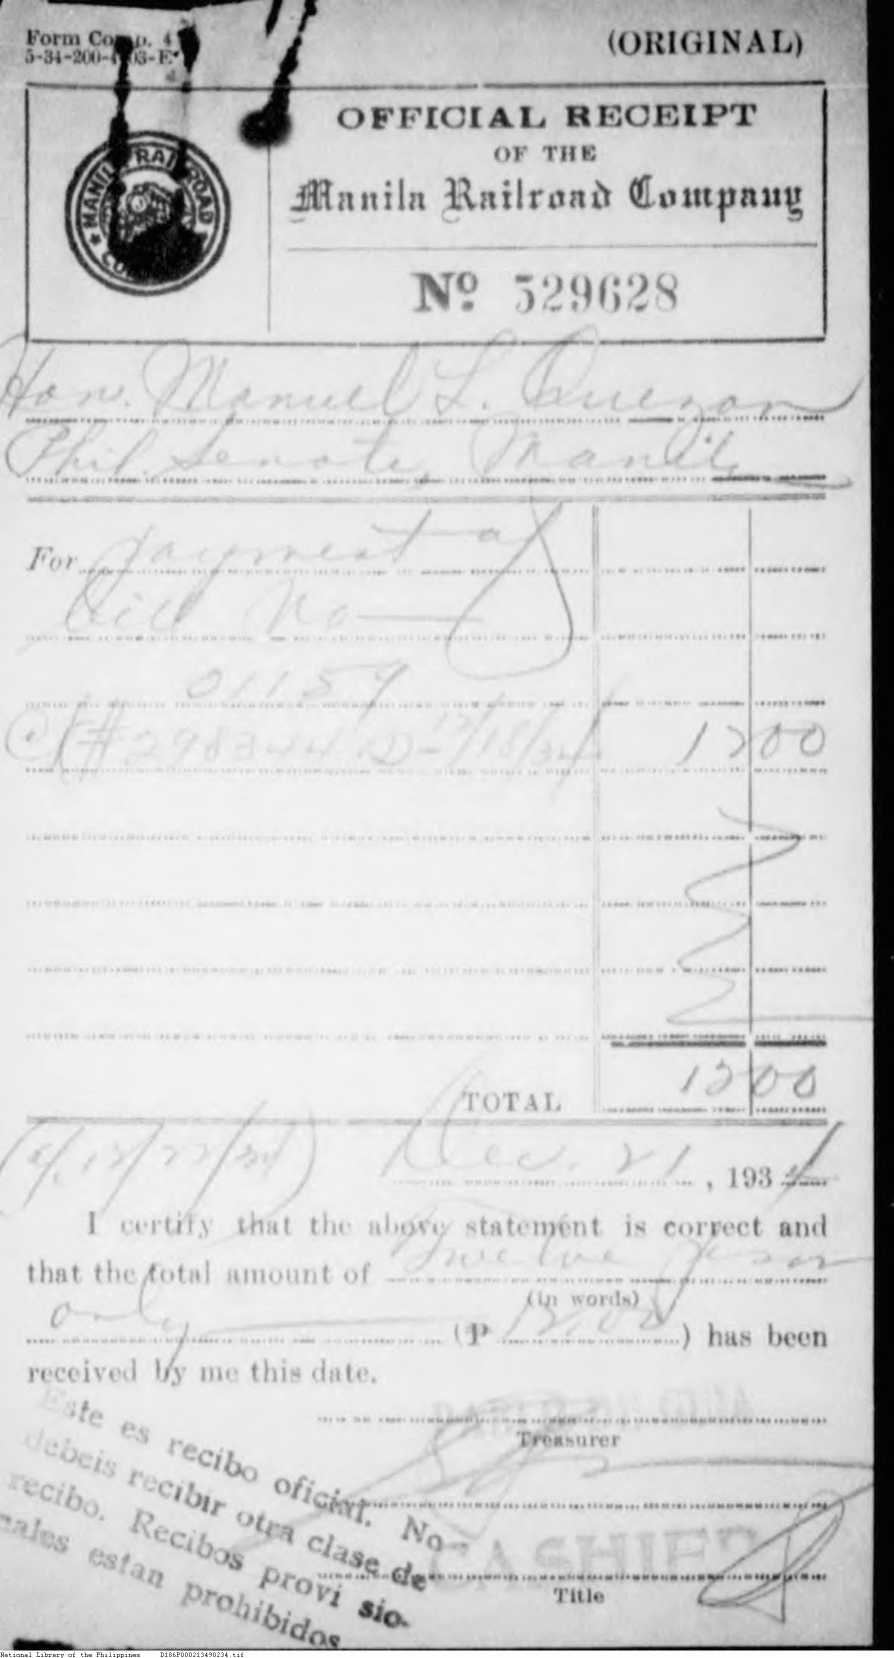 Form Comp. 4
5-34-200-
(ORIGINAL)
OFFICIAL RECEIPT
OF THE
Manila Railroad Company
MANILA RAILROAD
Nº 529628
Hon. Manuel L. Quezon
Phil. Senate, Manila
For payment of
bill No —
01159
1200
1200
TOTAL
Dec. 21, 1934
I certify that the above statement is correct and
that the total amount of Twelve Pesos
(in words)
only (P 12.00) has been
received by me this date.
Treasurer
CASHIER
Title
Este es recibo oficial. No
debeis recibir otra clase de
recibo. Recibos provisio-
nales estan prohibidos
National Library of the Philippines D186P000213490234.tif